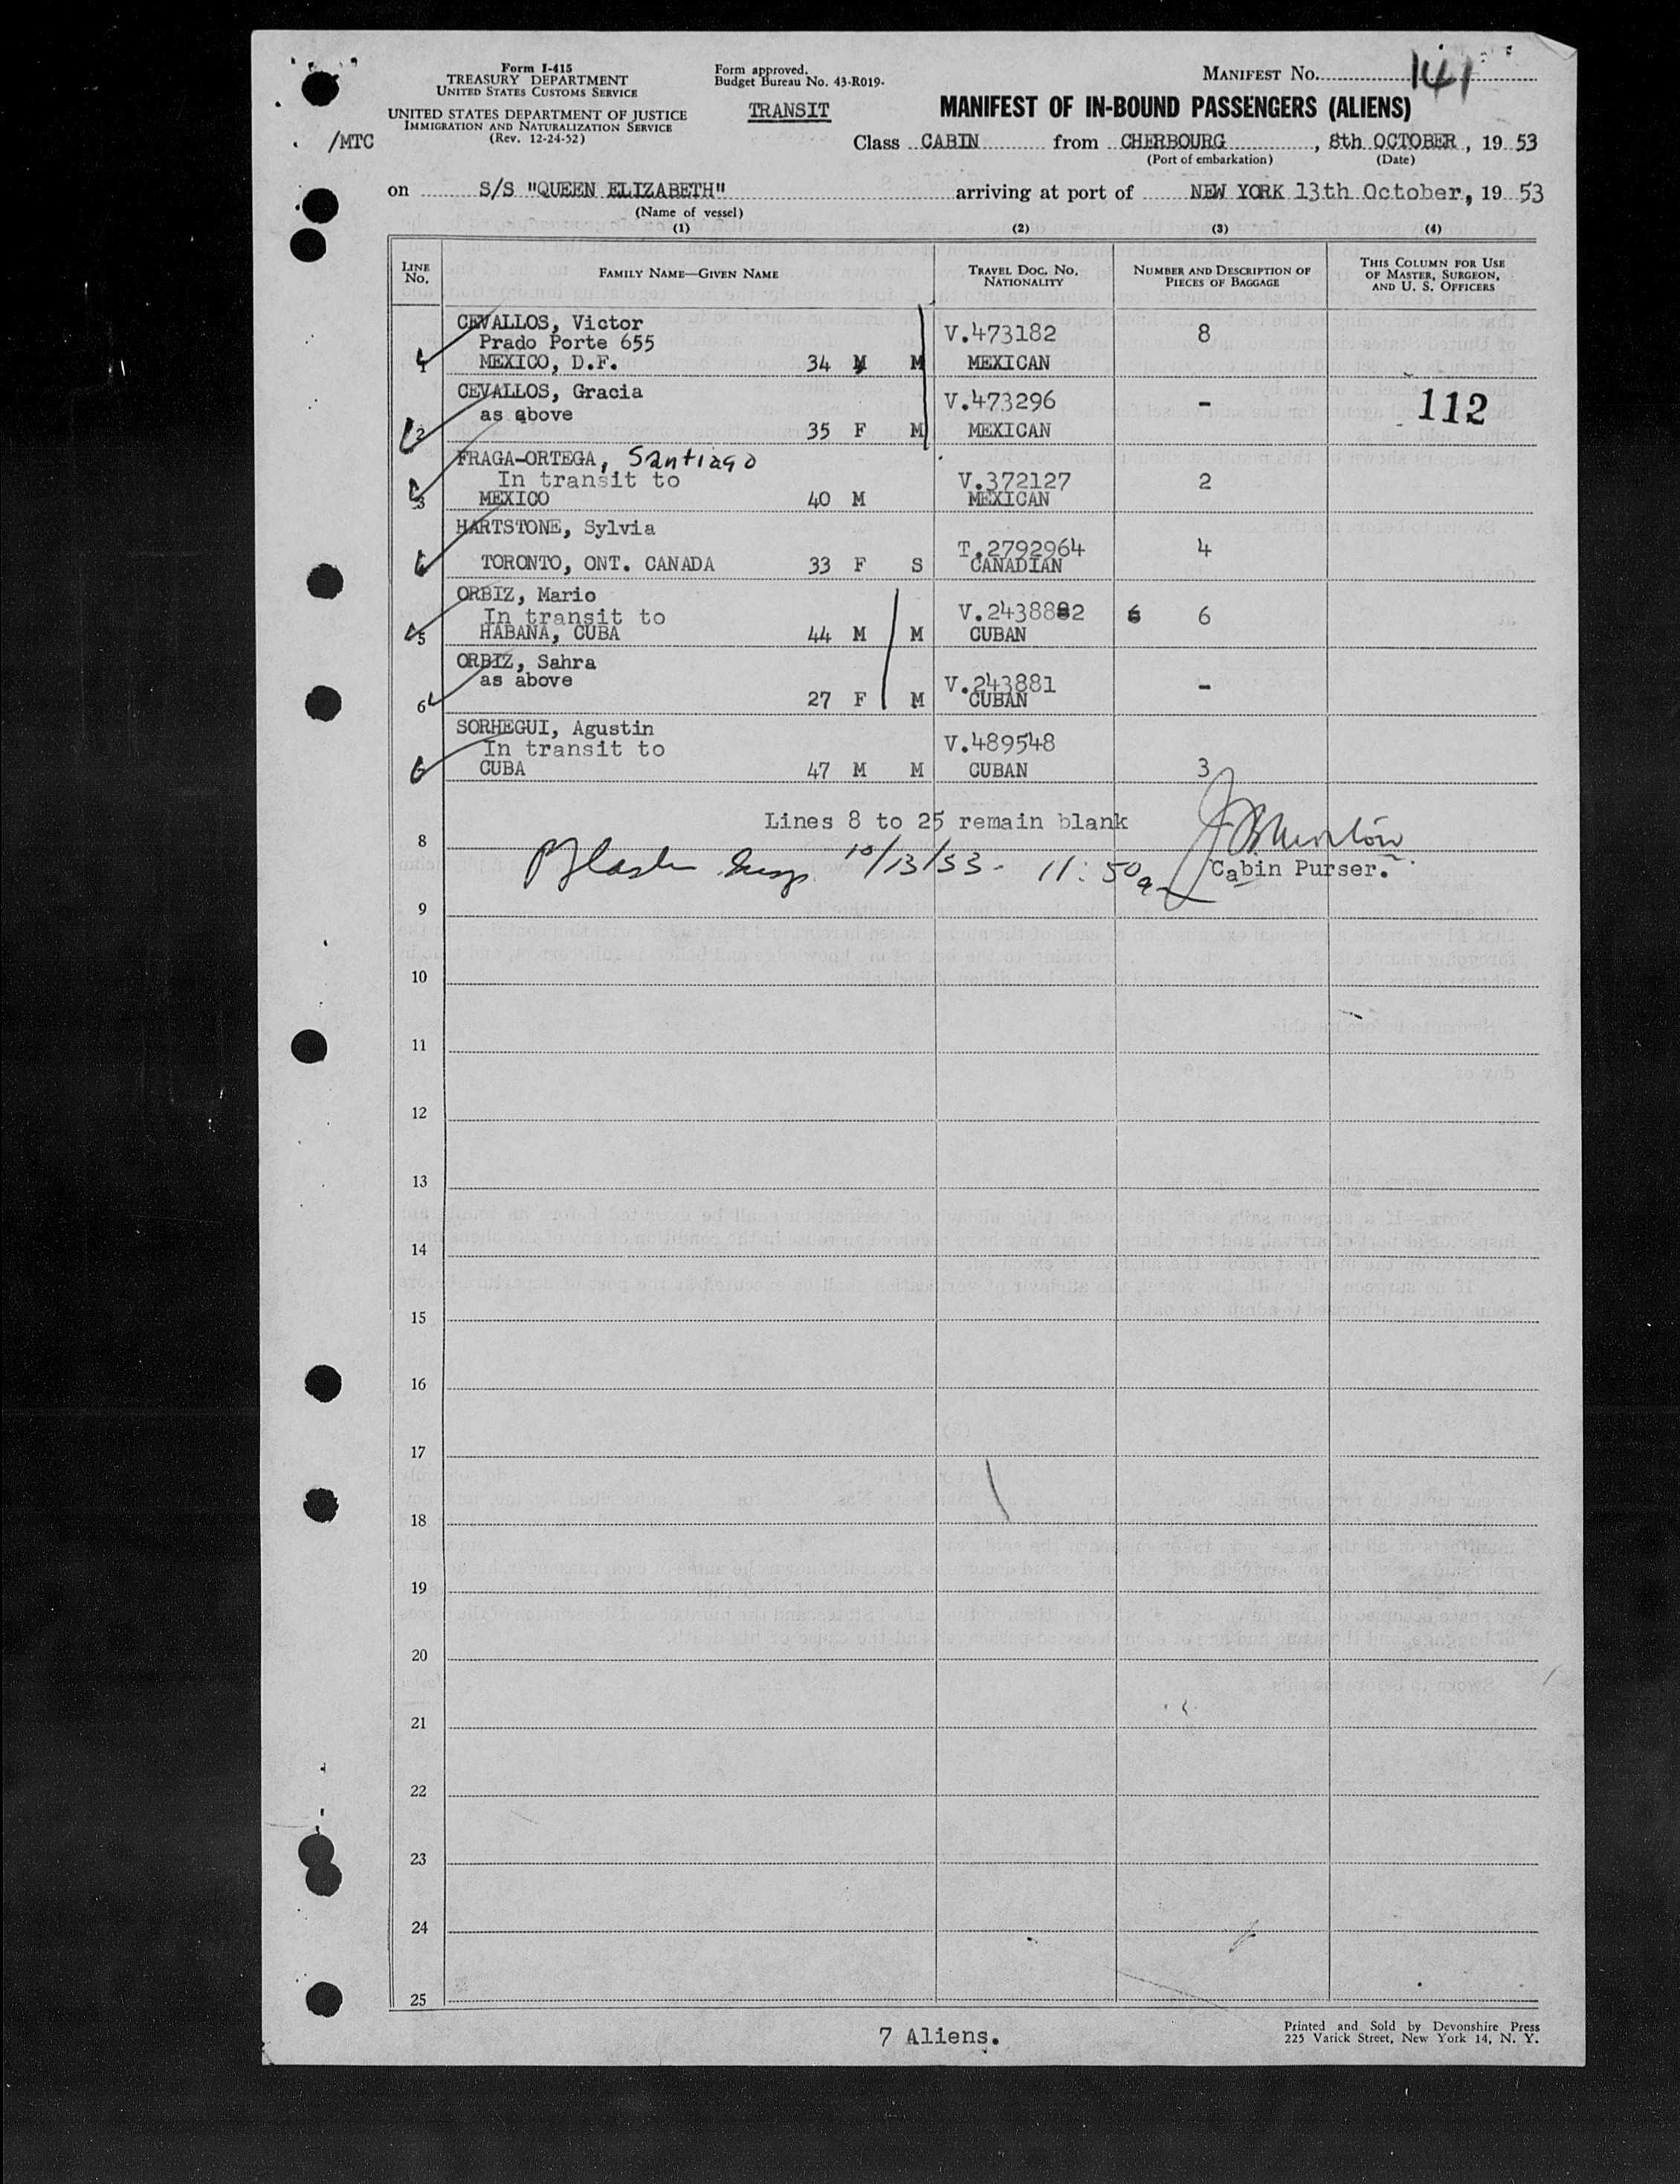 Form I-415
TREASURY DEPARTMENT
UNITED STATES CUSTOMS SERVICE
UNITED STATES DEPARTMENT OF JUSTICE
IMMIGRATION AND NATURALIZATION SERVICE
(Rev. 12-24-52)
/MTC
Form approved.
Budget Bureau No. 43-R019-
TRANSIT
MANIFEST NO. 141
MANIFEST OF IN-BOUND PASSENGERS (ALIENS)
Class CABIN from CHERBOURG, 8th OCTOBER, 19 53
(Port of embarkation) (Date)
on S/S "QUEEN ELIZABETH" arriving at port of NEW YORK 13th October, 19 53
(Name of vessel)
(1) (2) (3) (4)
LINE NO. FAMILY NAME—GIVEN NAME TRAVEL DOC. NO. NATIONALITY NUMBER AND DESCRIPTION OF PIECES OF BAGGAGE THIS COLUMN FOR USE OF MASTER, SURGEON, AND U. S. OFFICERS
CEVALLOS, Victor
Prado Porte 655 V.473182 8
1 MEXICO, D.F. 34 M M MEXICAN
CEVALLOS, Gracia V.473296 - 112
as above
2 35 F M MEXICAN
FRAGA-ORTEGA, Santiago
In transit to V.372127 2
3 MEXICO 40 M MEXICAN
HARTSTONE, Sylvia
T.2792964 4
TORONTO, ONT. CANADA 33 F S CANADIAN
ORBIZ, Mario
In transit to V.2438882 6 6
5 HABANA, CUBA 44 M M CUBAN
ORBIZ, Sahra
as above V.243881 -
6 27 F M CUBAN
SORHEGUI, Agustin
In transit to V.489548
CUBA 47 M M CUBAN 3
Lines 8 to 25 remain blank
8
10/13/53 - 11:50 a
Cabin Purser.
9
10
11
12
13
14
15
16
17
18
19
20
21
22
23
24
25
7 Aliens.
Printed and Sold by Devonshire Press
225 Varick Street, New York 14, N. Y.